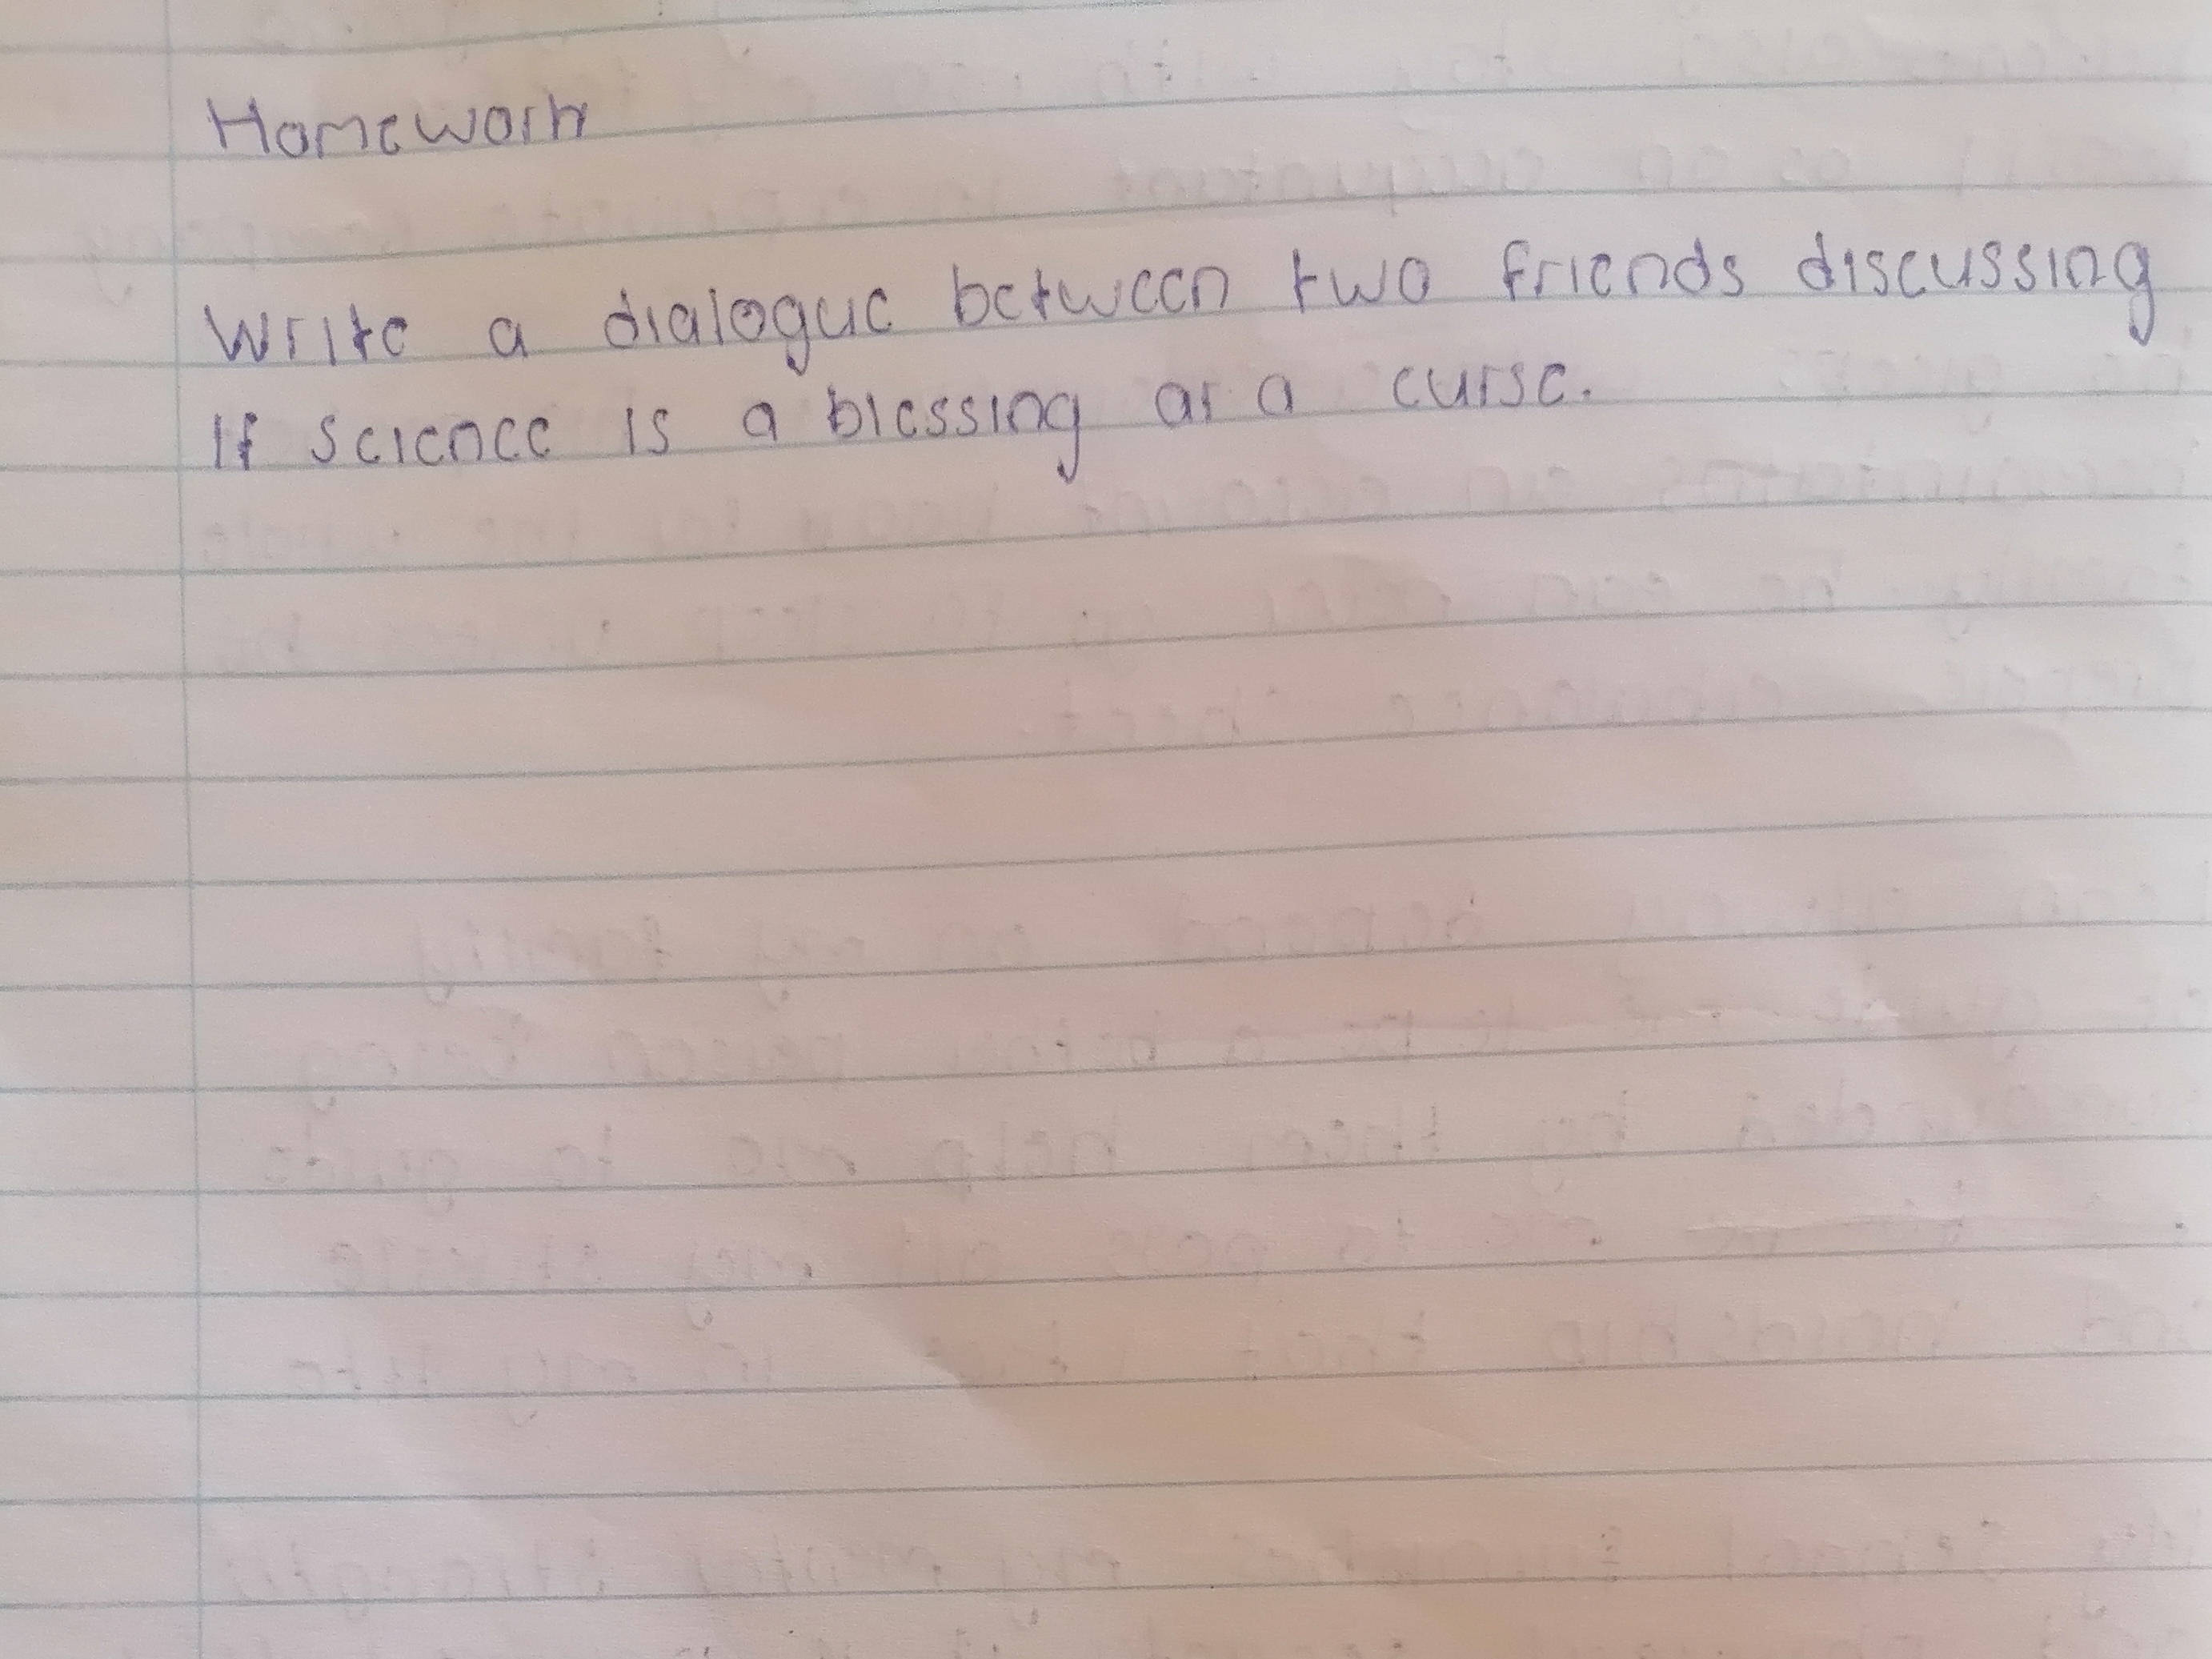 Homework
Write a dialogue between two friends discussing
If science is a blessing or a curse.